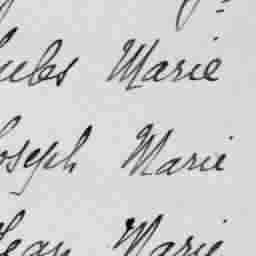 Jules Marie
Joseph Marie
Jean Marie